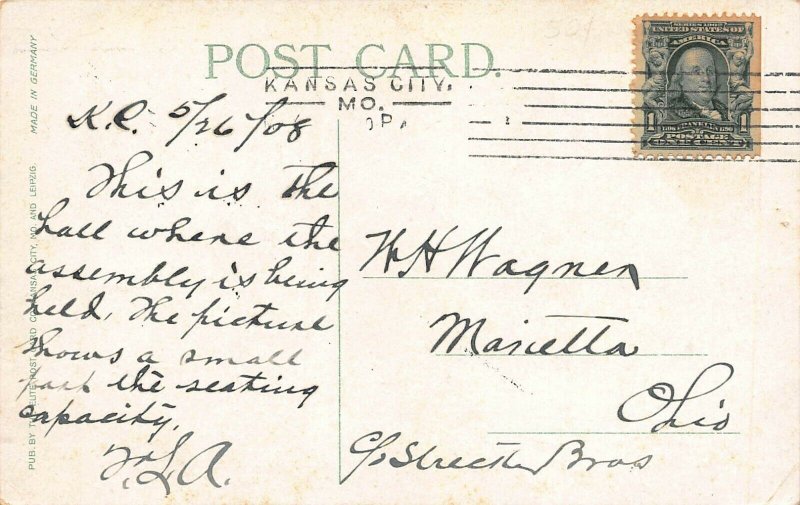 POST CARD.
SERIES 1902
UNITED STATES OF
AMERICA
FRANKLIN
1 POSTAGE 1
ONE CENT
KANSAS CITY,
MO.
K.C. 5/26/08
This is the
hall where the
assembly is being
held. The picture
shows a small
part the seating
capacity.
W H Wagner
Marietta
Ohio
c/o Strecker Bros
MADE IN GERMANY
PUB. BY THE ELITE POST CARD CO. KANSAS CITY, MO. AND LEIPZIG